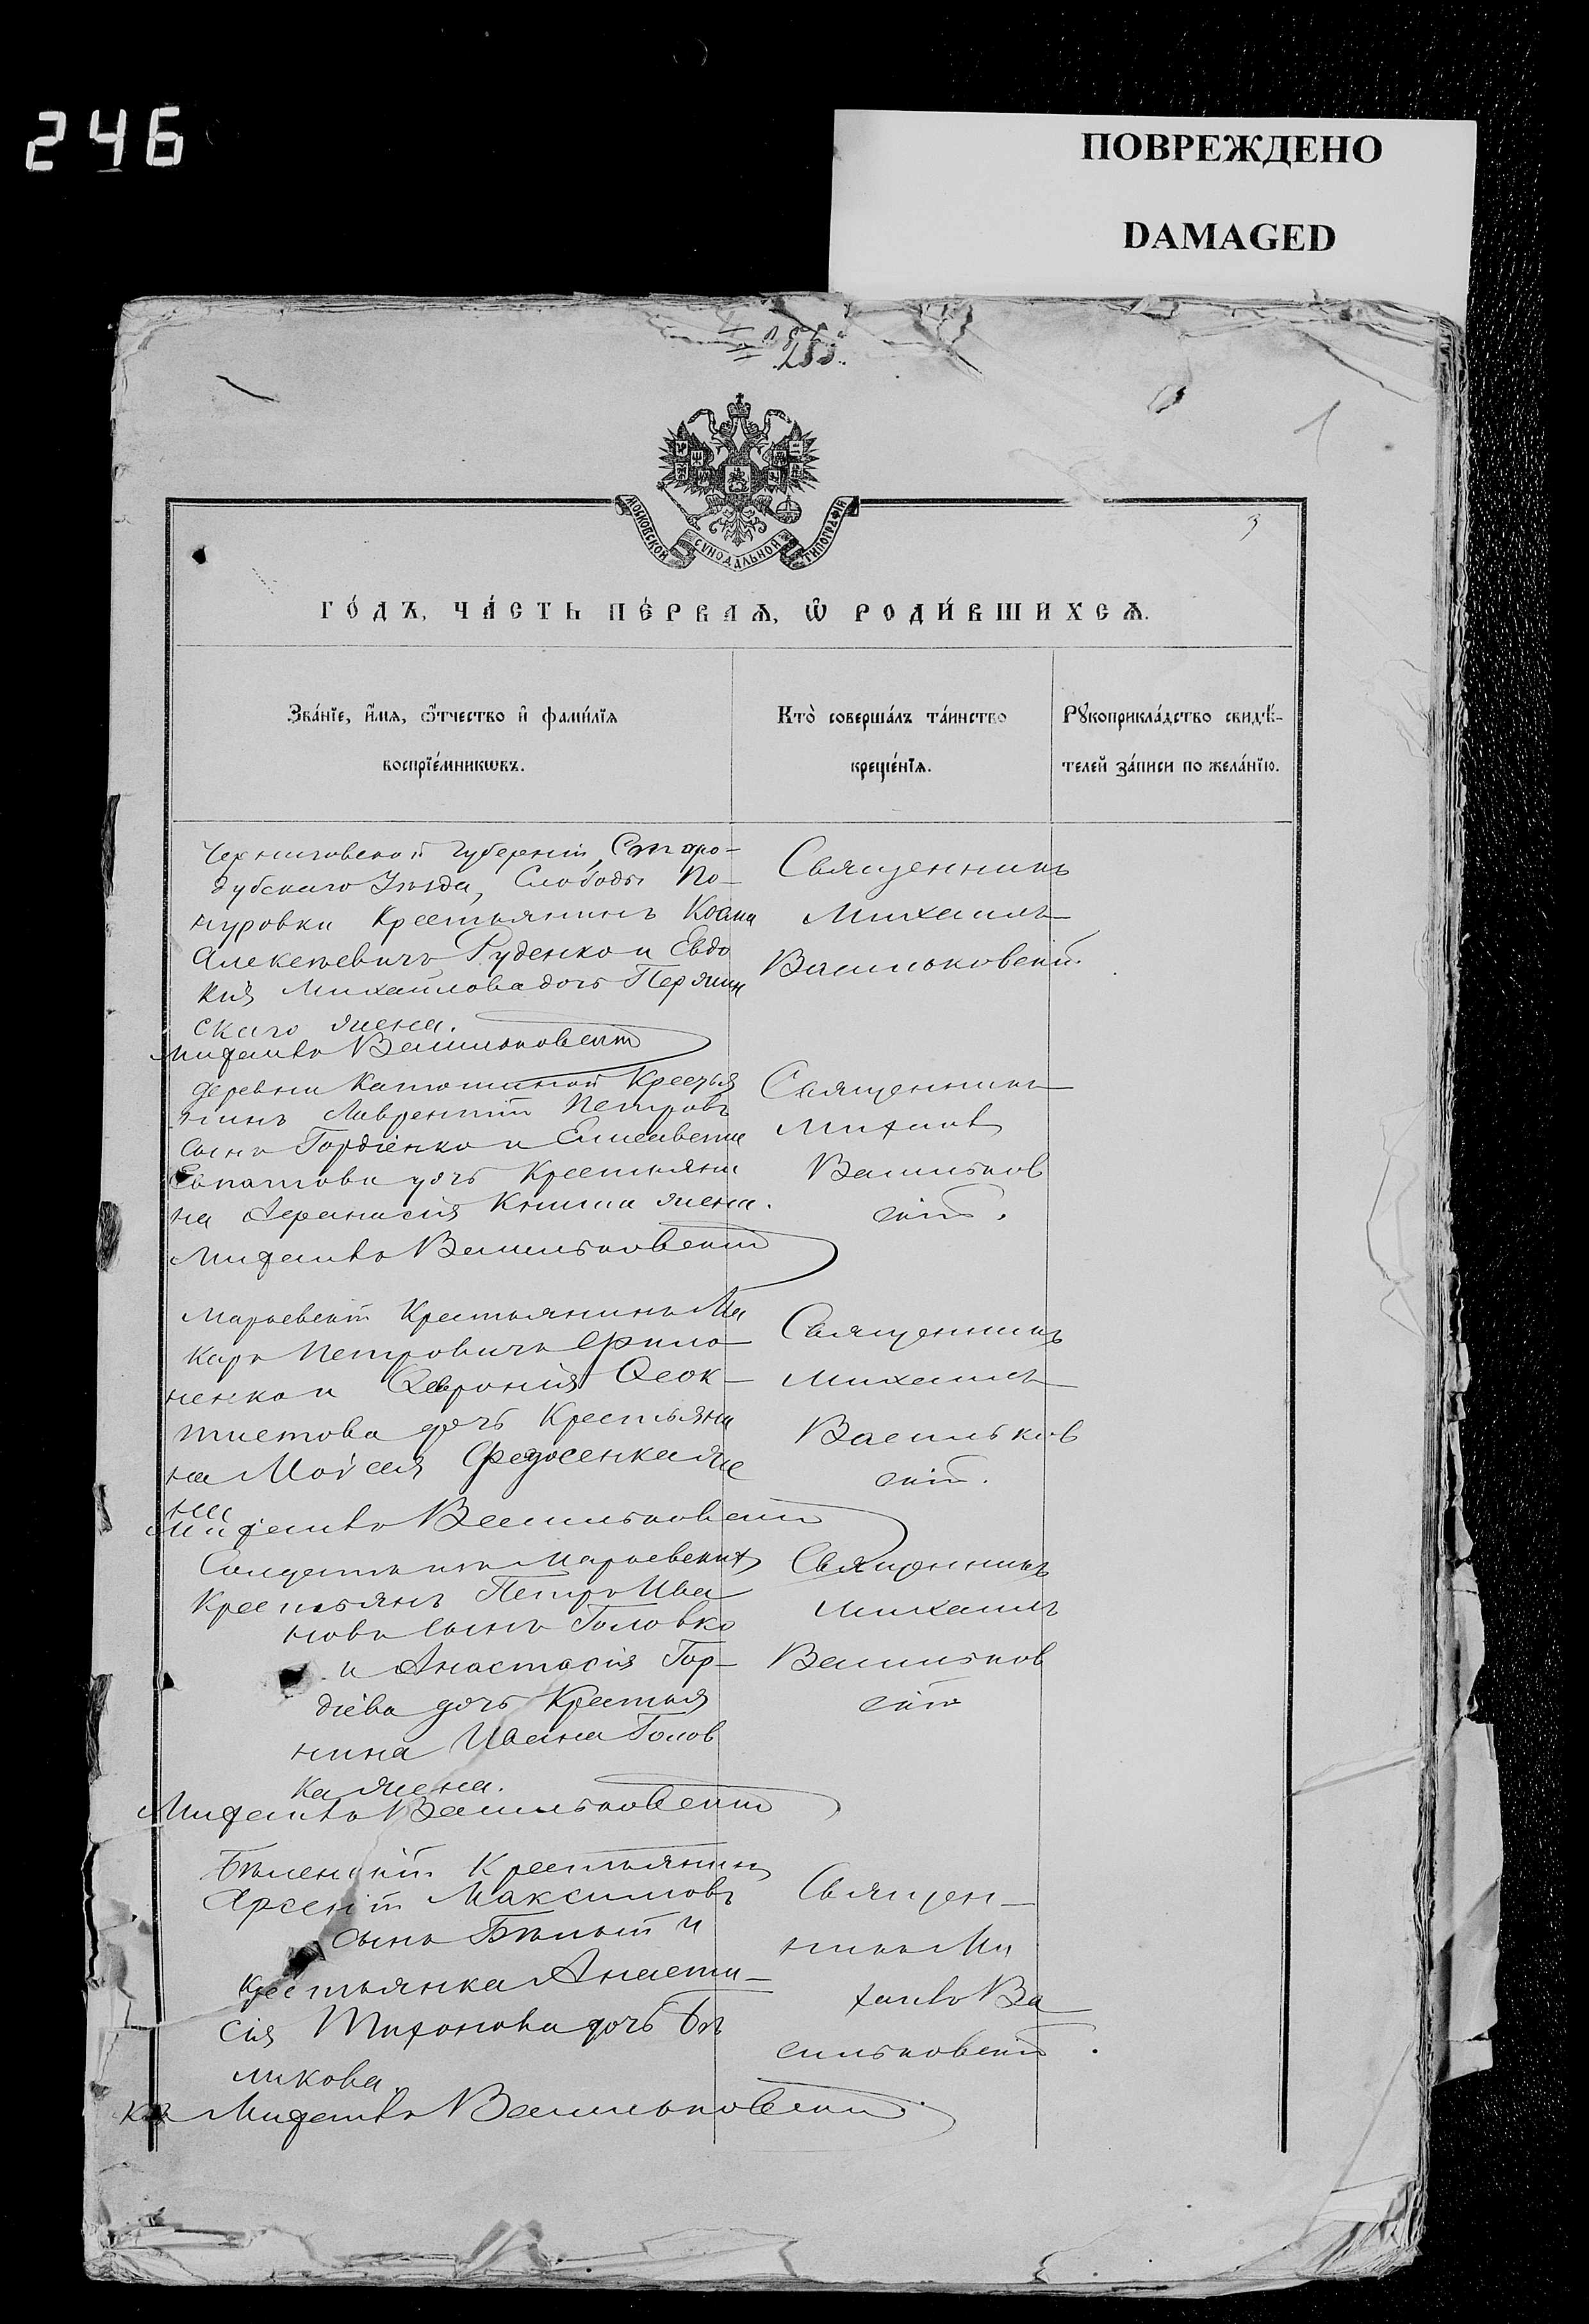 246
ПОВРЕЖДЕНО
DAMAGED
255.
1
МОСКОВСКОЙ СѴНОДАЛЬНОЙ ТИПОГРАФІИ
3
ГО́ДЪ, ЧА́СТЬ ПЕ́РВАѦ, Ѡ҆ РОДИ́ВШИХСѦ.
Зва́нїе, и҆́мѧ, ѻ҆́тчество и҆ фами́лїѧ
воспрїе́мникѡвъ.
Кто̀ соверша́лъ та́инство
креще́нїѧ.
Рꙋкоприкла́дство свидѣ́-
телей за́писи по жела́нїю.
Черниговской губерніи, Старо-
дубскаго Уѣзда, Слободы По-
нуровки Крестьянинъ Козма
Алексѣевичъ Руденко и Евдо
кія Михайлова дочь
скаго жена.
Священникъ
Михаилъ
Васильковскій.
Михаилъ Васильковскій
деревни Крестья
нинъ Лаврентій Петровъ
сынъ Гордіенко и Елисавета
дочь Крестьяни
на Афанасія жена.
Священникъ
Михаилъ
Васильков
скій.
Михаилъ Васильковскій
Марьевскій Крестьянинъ Ма
каръ Петровичъ Фило-
ненко и Ѳеврония Ѳеок-
тистова дочь Крестьяни
на Моисея Федосенка же
на
Священникъ
Михаилъ
Васильков
скій.
Михаилъ Васильковскій
Солдатъ изъ Марьевскихъ
Крестьянъ Петръ Ива
новъ сынъ Головко
и Анастасія Гор-
діева дочь Крестья
нина Ивана Голов
ка жена.
Священникъ
Михаилъ
Васильков
скій
Михаилъ Васильковскій
Бѣленскій Крестьянинъ
Арсеній Максимовъ
сынъ Бѣлый и
крестьянка Анаста-
сія Тихонова дочь Бѣ
ликова.
Священ-
никъ Ми
хаилъ Ва
сильковскій.
Михаилъ Васильковскій.